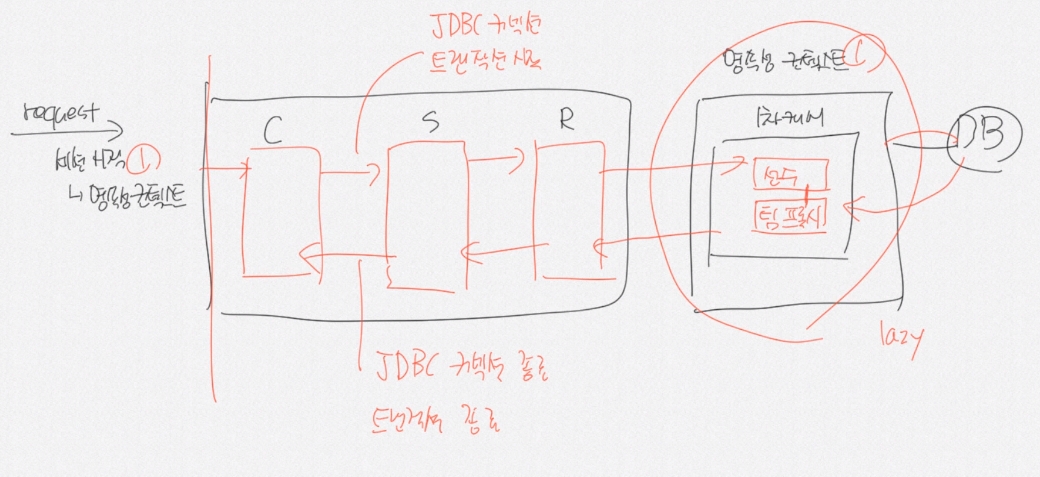 JDBC 커넥션
트랜잭션 시작
영속성 컨텍스트 ①
request
세션 시작 ①
↳ 영속성 컨텍스트
C
S
R
1차 캐시
DB
선수
팀 프록시
lazy
JDBC 커넥션 종료
트랜잭션 종료